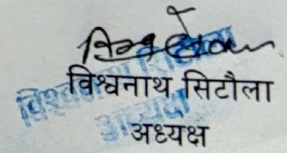 विश्वनाथ सिटौला
अध्यक्ष